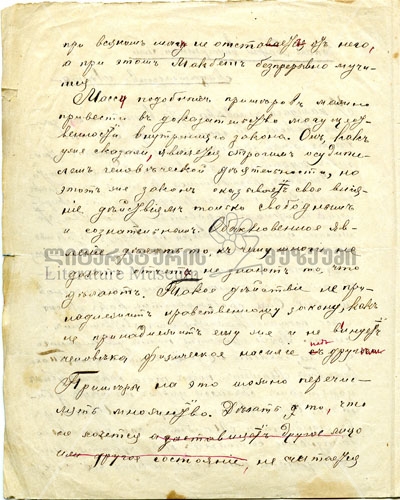 при всякомъ шагу не отстаетъ отъ него,
а при этомъ Макбетъ безпрерывно мучит-
ся
Массу подобныхъ примѣровъ можно
привести въ доказательство могуще-
ственности внутренняго закона. Онъ, какъ
уже сказали, является строгимъ
человѣческой дѣятельности, но
этотъ же законъ оказываетъ свое влія-
ніе дѣйствіямъ только свободнымъ
и сознательнымъ. Обыкновенное яв-
леніе дѣлать то, къ чему многіе не
не знаютъ то, что
дѣлаютъ. Такое дѣйствіе не при-
надлежитъ нравственному закону, какъ
не принадлежитъ ему же и не
человѣка физическое насиліе
ლიტერატურის მუზეუმი
Literature Museum
Примѣры на это можно перечис-
лять множество. Дѣлать то, что
не хочется заставляетъ другое лицо
или другое состояніе, не считается